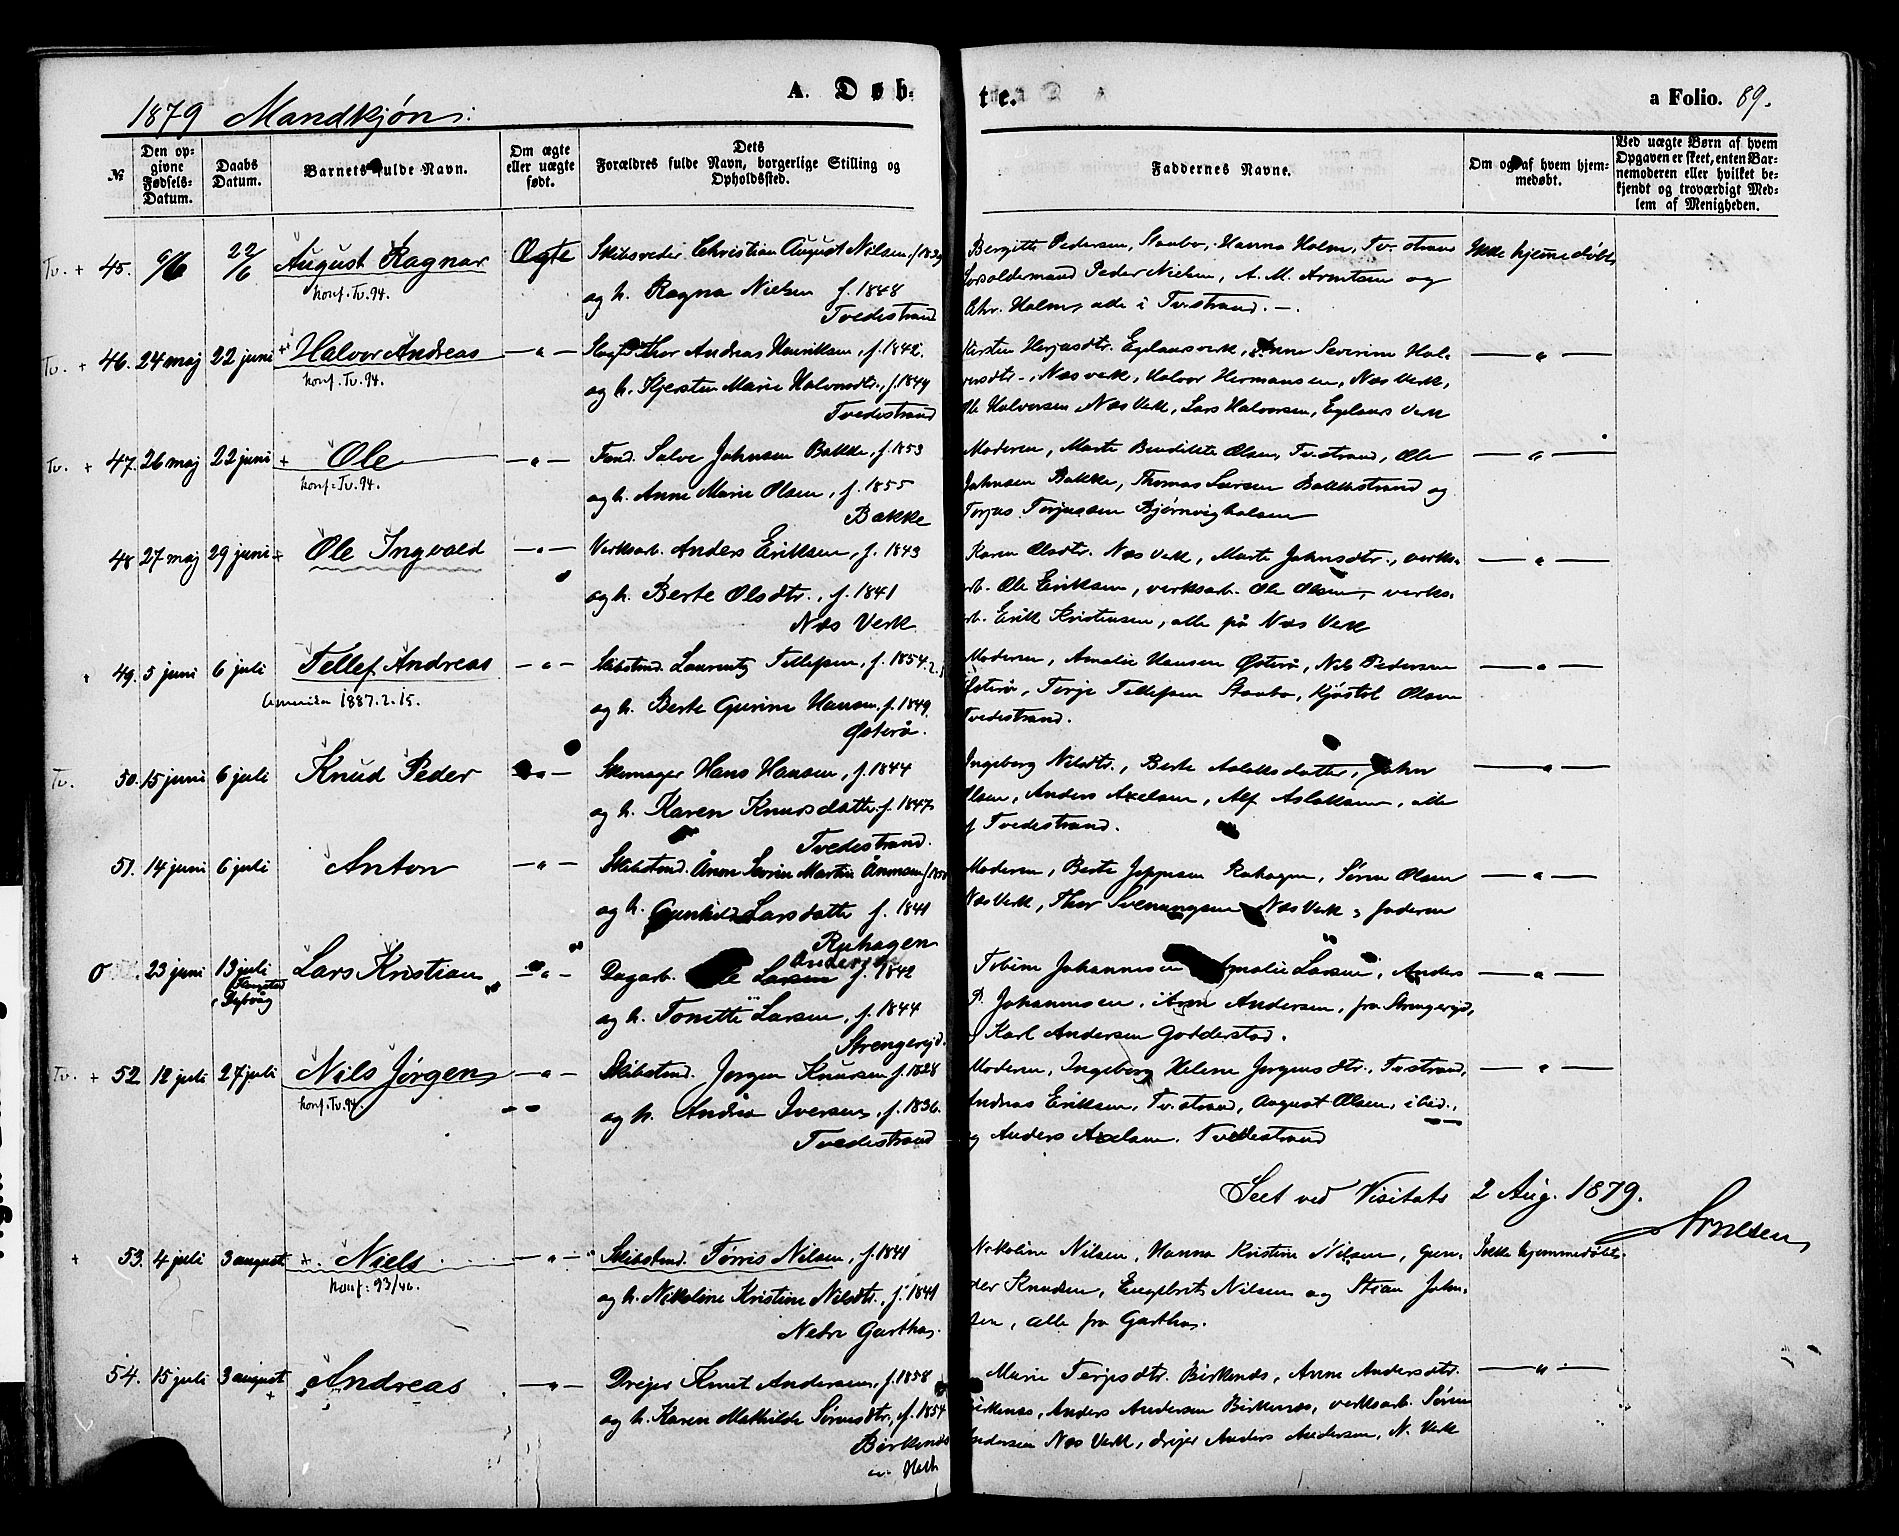 1879 Mandkjøn:
A. Døb-
te.
a Folio. 89.
№
Den op-
givne
Fødsels-
Datum.
Daabs
Datum.
Barnets fulde Navn.
Om ægte
eller uægte
født.
Dets
Forældres fulde Navn, borgerlige Stilling og
Opholdssted.
Faddernes Navne.
Om og af hvem hjem-
medøbt.
Ved uægte Børn af hvem
Opgaven er skeet, enten Bar-
nemoderen eller hvilket be-
kjendt og troværdigt Med-
lem af Menigheden.
Tv. + 45. 6/6 22/6 August Ragnar Ægte Christian August Nilsen
konf. Tv. 94.
og h. Ragna Nielsen f. 1848
Tvedestrand
Bergitte Pedersen, Staubø, Hanna Holm, Tv.strand
Peder Nielsen, A. M. Arntsen og
Chr. Holm, alle i Tv.strand. —
Ikke hjemmedøbt
Tv. + 46. 24 maj 22 juni + Halvor Andreas — " — Thor Andreas Henriksen, f. 1842.
konf. Tv. 94.
og h. Kjersten Marie Halvorsdtr., f. 1849
Tvedestrand
Kirsten Egelandsverk, Anne Severine Hal-
vorsdtr., Næs verk, Halvor Hermansen, Næs Verk,
Ole Halvorsen Næs Verk, Lars Halvorsen, Egelands Verk
— " —
Tv. + 47. 26 maj 22 juni + Ole — " — Salve Johnsen Bakke, f. 1853
konf. Tv. 94.
og h. Anne Marie Olsen, f. 1855
Bakke
Moderen, Marte Olsen, Tv.strand, Ole
Johnsen Bakke, Thomas Larsen Bakkestrand og
Torjus Torjussen Bjørnvigholmen
— " —
48 27 maj 29 juni + Ole Ingvald — " — Verksarb. Anders Eriksen, f. 1843
og h. Berte Olsdtr., f. 1841
Næs Verk
Karen Olsdtr. Næs Verk, Marte Johnsdtr., verks-
arb. Ole Eriksen, verksarb. Ole Olsen, verks-
arb. Erik Kristensen, alle på Næs Verk
— " —
+ 49. 5 juni 6 juli Tellef Andreas — " — Skibstmd. Laurentz Tellefsen, f. 1854
Amerika 1887. 2. 15.
og h. Berte Gurine Hansen, f. 1849
Østerø.
Moderen, Amalie Hansen Østerø, Nils Pedersen
Østerø, Terje Tellefsen Staubø, Kjøstol Olsen
Tvedestrand.
— " —
Tv. 50. 15 juni 6 juli Knud Peder — " — Skomager Hans Hansen, f. 1844
og h. Karen Knudsdatter f. 1847
Tvedestrand.
Ingeborg Nilsdtr., Berte Aslaksdatter, John
Olsen, Anders Axelsen, Alf Aslaksen, alle
af Tvedestrand.
— " —
51. 14 juni 6 juli Anton — " — Skibstmd. Ånon Martin Ånonsen
og h. Gunhild Larsdatter f. 1841
Ruhagen
Moderen, Berte Jeppesen Ruhagen, Søren Olsen
Næs Verk, Thor Svenungsen Næs Verk, Faderen
— " —
0 23 juni 13 juli Lars Kristian — " — Dagarb. Larsen f. 1842
Andersen
Dybvåg
og h. Tonette Larsen, f. 1844
Strengereid.
Tobine Johannesen Amalie Larsen, Anders
P. Johannesen, Andersen, fra Strengereid,
Karl Andersen Godderstad.
— " —
Tv. + 52 12 juli 27 juli Nils Jørgen — " — Skibstmd. Jørgen Knudsen f. 1828
konf. Tv. 94.
og h. Andrea Iversen, f. 1836.
Tvedestrand
Moderen, Ingeborg Helene Jørgensdtr., Tv.strand,
Andreas Eriksen, Tv.strand, August Olsen, ibid.,
og Anders Axelsen, Tvedestrand
— " —
Seet ved Visitats 2 Aug. 1879.
Arnesen
+ 53. 4 juli 3 august + Niels — " — Skibstmd. Tørris Nilsen, f. 1841
konf: 93/46.
og h. Nikoline Kristine Nilsdtr., f. 1841
Nedre Gartha.
Nikoline Nilsen, Hanna Kristine Nilsen, Gun-
der Knudsen, Engebret Nilsen og Stian John-
sen, alle fra Gartha.
Ikke hjemmedøbt
54. 15 juli 3 august + Andreas — " — Drejer Knut Andersen, f. 1858
og h. Karen Mathilde Sørensdtr., f. 1854
Birkenæs
Marie Terjesdtr. Birkenæs, Anne Andersdtr.
Birkenæs, Anders Andersen Birkenæs, verksarb. Søren
Andersen Næs Verk, drejer Anders Andersen, N. Verk
— " —